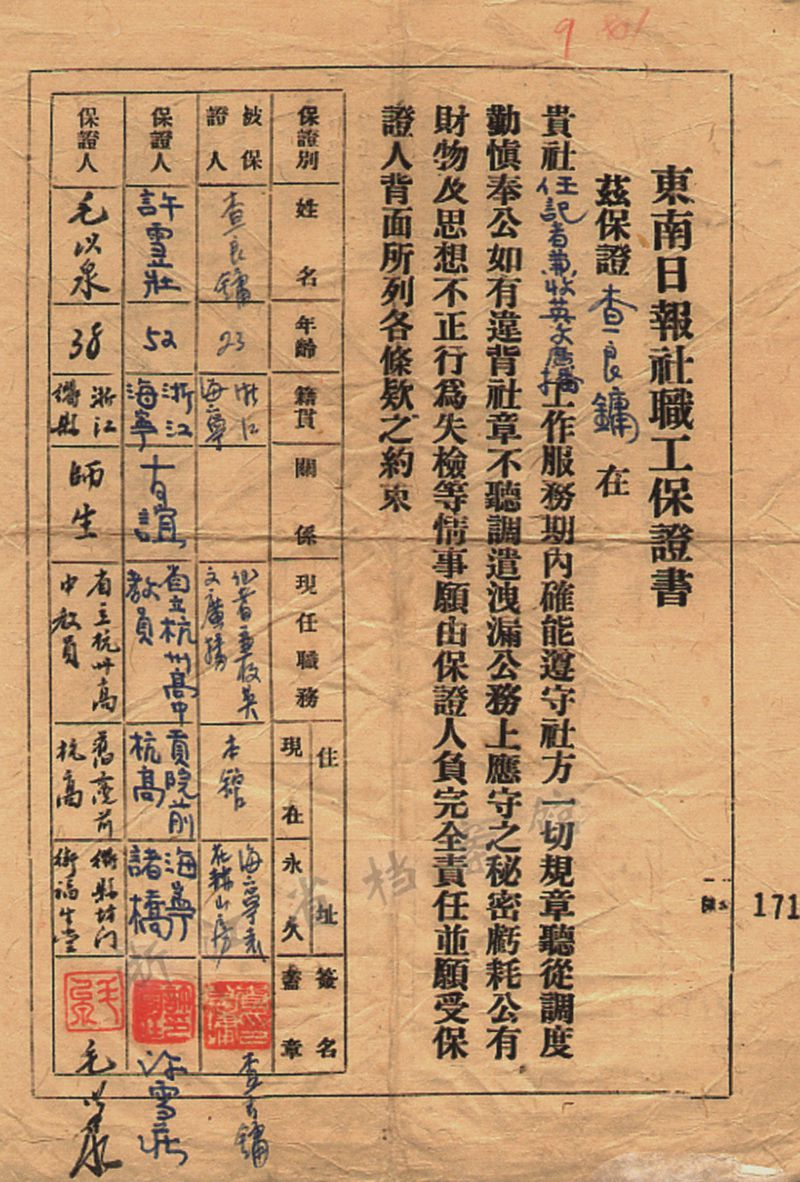 東南日報社職工保證書
茲保證查良鏞在
貴社任記者兼收英文廣播工作服務期內確能遵守社方一切規章聽從調度
勤慎奉公如有違背社章不聽調遣洩漏公務上應守之秘密虧耗公有
財物及思想不正行爲失檢等情事願由保證人負完全責任並願受保
證人背面所列各條欵之約束
保證別 姓名 年齡 籍貫 關係 現任職務 住址 現在 永久 簽名蓋章
被保證人 查良鏞 23 浙江海寧 記者兼收英文廣播 本館 海寧袁花赫山房 查良鏞
保證人 許雪壯 52 浙江海寧 省立杭州高中教員 貢院前杭高 海寧諸橋
保證人 毛以泉 38 浙江衢縣 師生 省立杭州高中教員 杭高 衢縣坊门街福生堂 毛以泉
171
9
浙江省档案馆